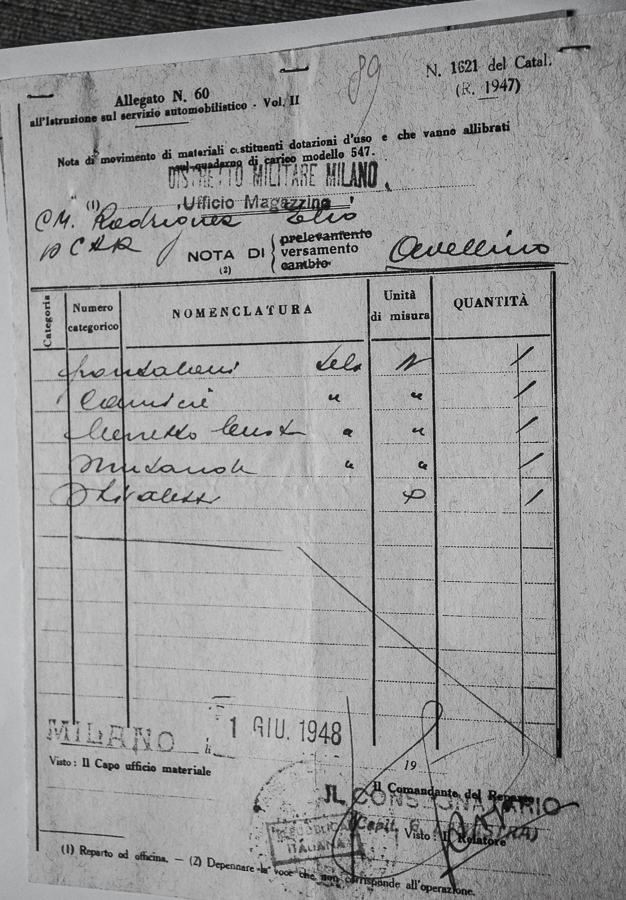 89
N. 1621 del Catal.
(R. 1947)
Allegato N. 60
all'Istruzione sul servizio automobilistico - Vol. II
Nota di movimento di materiali costituenti dotazioni d'uso e che vanno allibrati
sul quaderno di carico modello 547.
DISTRETTO MILITARE MILANO
(1) Ufficio Magazzino
CM. Rodriguez Elio
CAR
NOTA DI
(2)
prelevamento
versamento
cambio
Avellino
Categoria
Numero categorico
NOMENCLATURA
Unità di misura
QUANTITÀ
pantaloni tela N 1
Camicie " " 1
Berretto " " 1
Mutande " " 1
Stivaletti P 1
MILANO li 1 GIU. 1948
19
Visto: Il Capo ufficio materiale
Il Comandante del Reparto
IL CONSEGNATARIO
Visto: Il Relatore
REPUBBLICA
ITALIANA
(1) Reparto od officina. — (2) Depennare la voce che non corrisponde all'operazione.